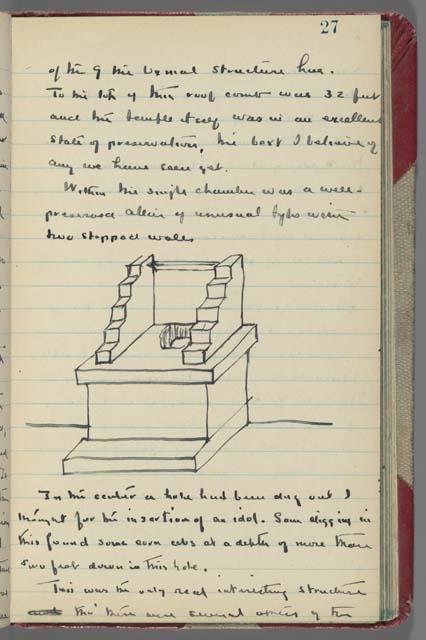 27
of the 9 the Uxmal Structure has.
To the top of this roof comb was 32 feet
and the temple itself was in an excellent
state of preservation, the best I believe of
any we have seen yet.
Within the single chamber was a well-
preserved altar of unusual type with
two stepped walls
In the center a hole had been dug out I
thought for the insertion of an idol. Sam digging in
this found some corn cobs at a depth of more than
two feet down in this hole.
This was the only real interesting structure
tho' there were several others of the